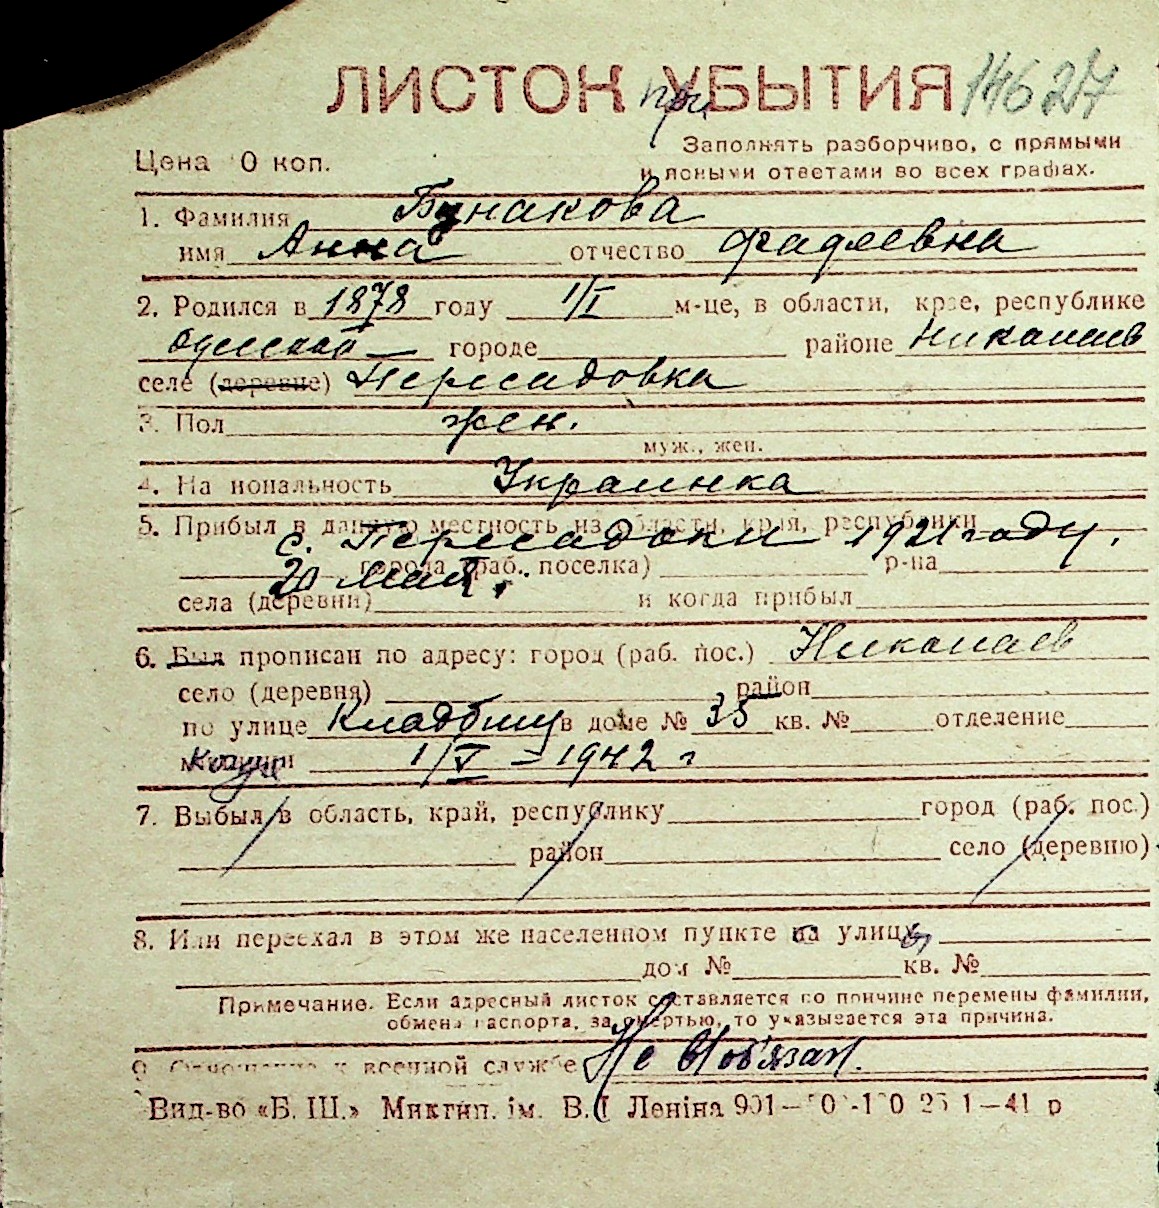 ЛИСТОК при УБЫТИЯ 14627
Цена 0 коп.
Заполнять разборчиво, с прямыми
и ясными ответами во всех графах.
1. Фамилия Бунакова
имя Анна отчество Фадеевна
2. Родился в 1878 году 1/I м-це, в области, крае, республике
Одесской городе районе Николаев
селе (деревне) Пересадовка
3. Пол жен.
муж., жен.
4. На иональность Украинка
5. Прибыл в данную местность из области, края, республики
с. Пересадовки 1921 году.
города (раб. поселка) р-на
20 мая.
села (деревни) и когда прибыл
6. Был прописан по адресу: город (раб. пос.) Николаев
село (деревня) район
по улице Кладбищ в доме № 35 кв. № отделение
милиции 1/V – 1942 г
7. Выбыл в область, край, республику город (раб. пос.)
район село (деревню)
8. Или переехал в этом же населенном пункте на улицу
дом № кв. №
Примечание. Если адресный листок составляется по причине перемены фамилии,
обмена паспорта, за смертью, то указывается эта причина.
9. Отношение к военной службе Не
Вид-во «Б. Ш.» Микгип. ім. В. І Леніна 901— 1—41 р